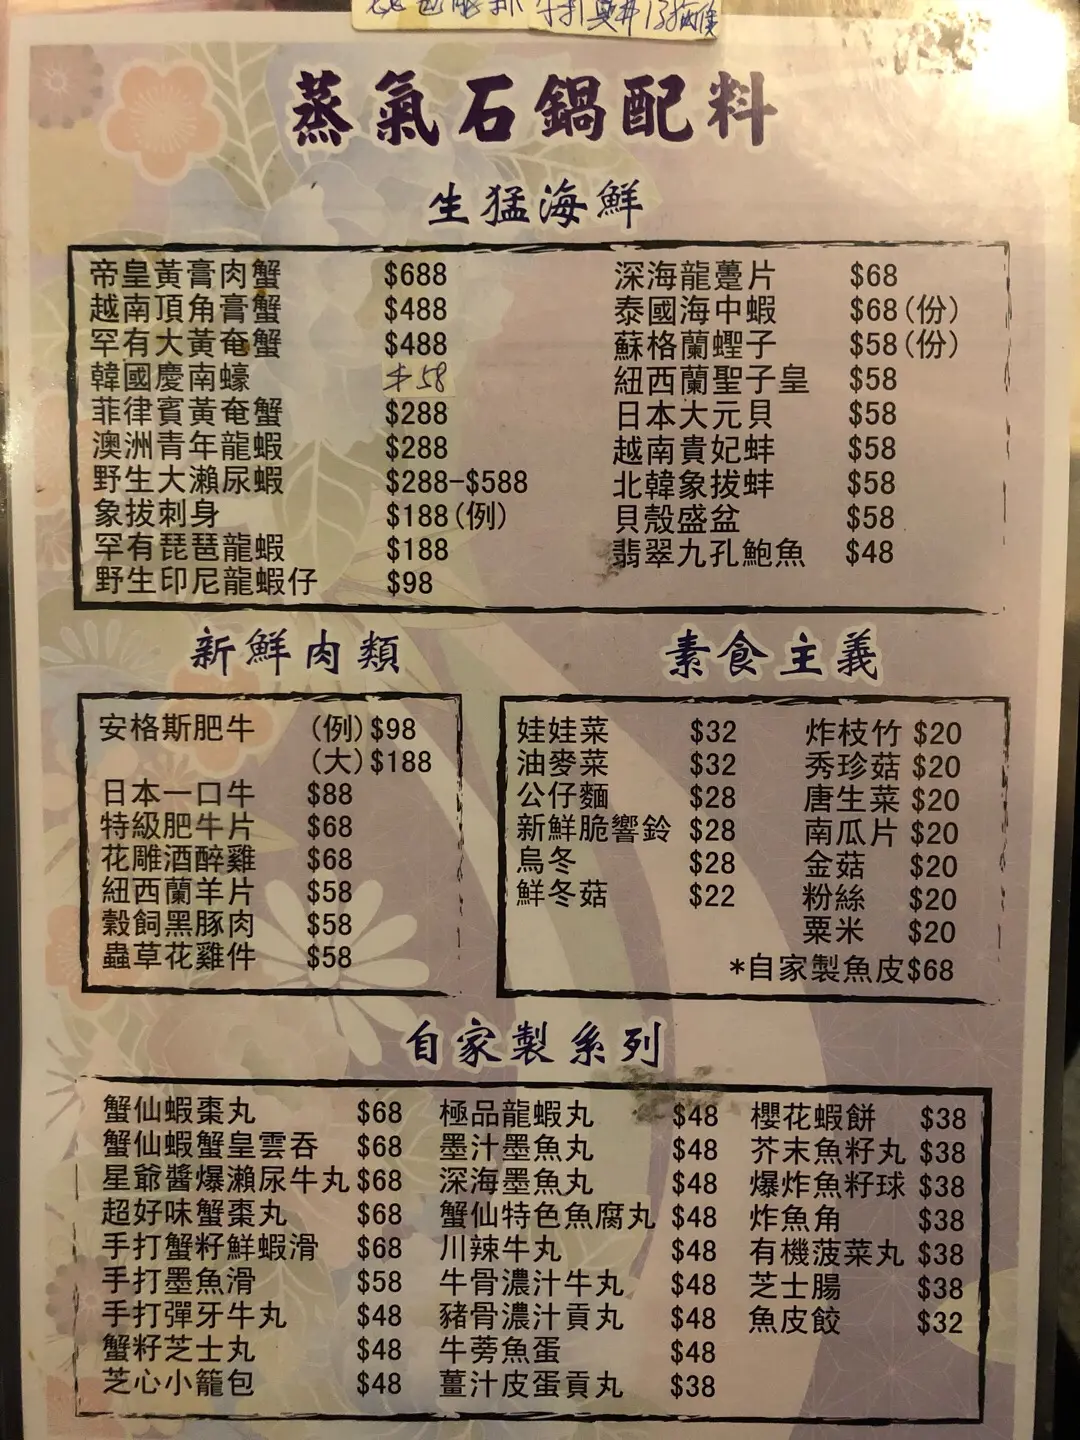 蒸氣石鍋配料
生猛海鮮
帝皇黃膏肉蟹 $688
越南頂角膏蟹 $488
罕有大黃奄蟹 $488
韓國慶南蠔 $58
菲律賓黃奄蟹 $288
澳洲青年龍蝦 $288
野生大瀨尿蝦 $288-$588
象拔刺身 $188(例)
罕有琵琶龍蝦 $188
野生印尼龍蝦仔 $98
深海龍躉片 $68
泰國海中蝦 $68(份)
蘇格蘭蟶子 $58(份)
紐西蘭聖子皇 $58
日本大元貝 $58
越南貴妃蚌 $58
北韓象拔蚌 $58
貝殼盛盆 $58
翡翠九孔鮑魚 $48
新鮮肉類
安格斯肥牛 (例)$98
(大)$188
日本一口牛 $88
特級肥牛片 $68
花雕酒醉雞 $68
紐西蘭羊片 $58
穀飼黑豚肉 $58
蟲草花雞件 $58
素食主義
娃娃菜 $32
油麥菜 $32
公仔麵 $28
新鮮脆響鈴 $28
烏冬 $28
鮮冬菇 $22
炸枝竹 $20
秀珍菇 $20
唐生菜 $20
南瓜片 $20
金菇 $20
粉絲 $20
粟米 $20
*自家製魚皮$68
自家製系列
蟹仙蝦棗丸 $68
蟹仙蝦蟹皇雲吞 $68
星爺醬爆瀨尿牛丸 $68
超好味蟹棗丸 $68
手打蟹籽鮮蝦滑 $68
手打墨魚滑 $58
手打彈牙牛丸 $48
蟹籽芝士丸 $48
芝心小籠包 $48
極品龍蝦丸 $48
墨汁墨魚丸 $48
深海墨魚丸 $48
蟹仙特色魚腐丸 $48
川辣牛丸 $48
牛骨濃汁牛丸 $48
豬骨濃汁貢丸 $48
牛蒡魚蛋 $48
薑汁皮蛋貢丸 $38
櫻花蝦餅 $38
芥末魚籽丸 $38
爆炸魚籽球 $38
炸魚角 $38
有機菠菜丸 $38
芝士腸 $38
魚皮餃 $32